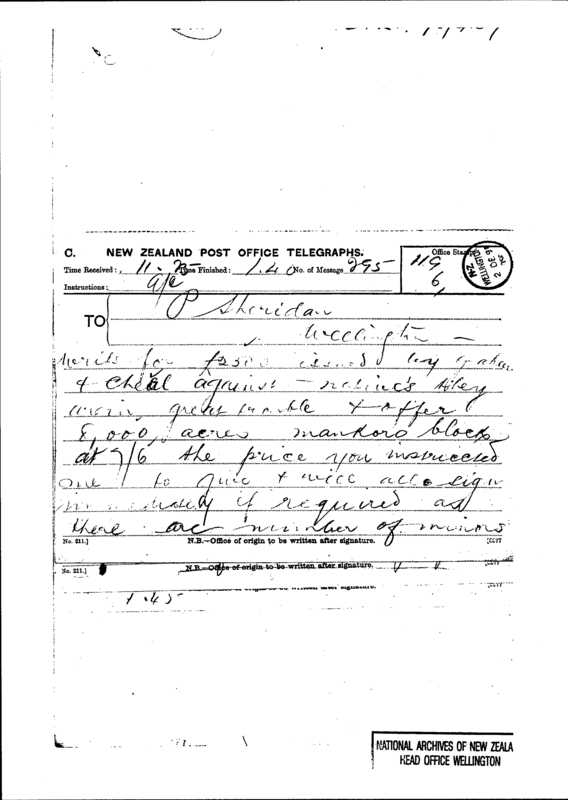 C. NEW ZEALAND POST OFFICE TELEGRAPHS.
Time Received: 11. Time Finished: 1.40 No. of Message 295
Office Stamp
119
6
WELLINGTON N.Z. 2 DE
Instructions:
TO
P Sheridan
Wellington
Writs for £2500 issued by
& Cheal against natives they
are in great trouble & offer
8,000, acres block
at 7/6 the price you instructed
me to give & will all sign
immediately if required as
there are number of minors
No. 211.] N.B.—Office of origin to be written after signature.
No. 211.] N.B.—Office of origin to be written after signature.
1.45
NATIONAL ARCHIVES OF NEW ZEALA
HEAD OFFICE WELLINGTON